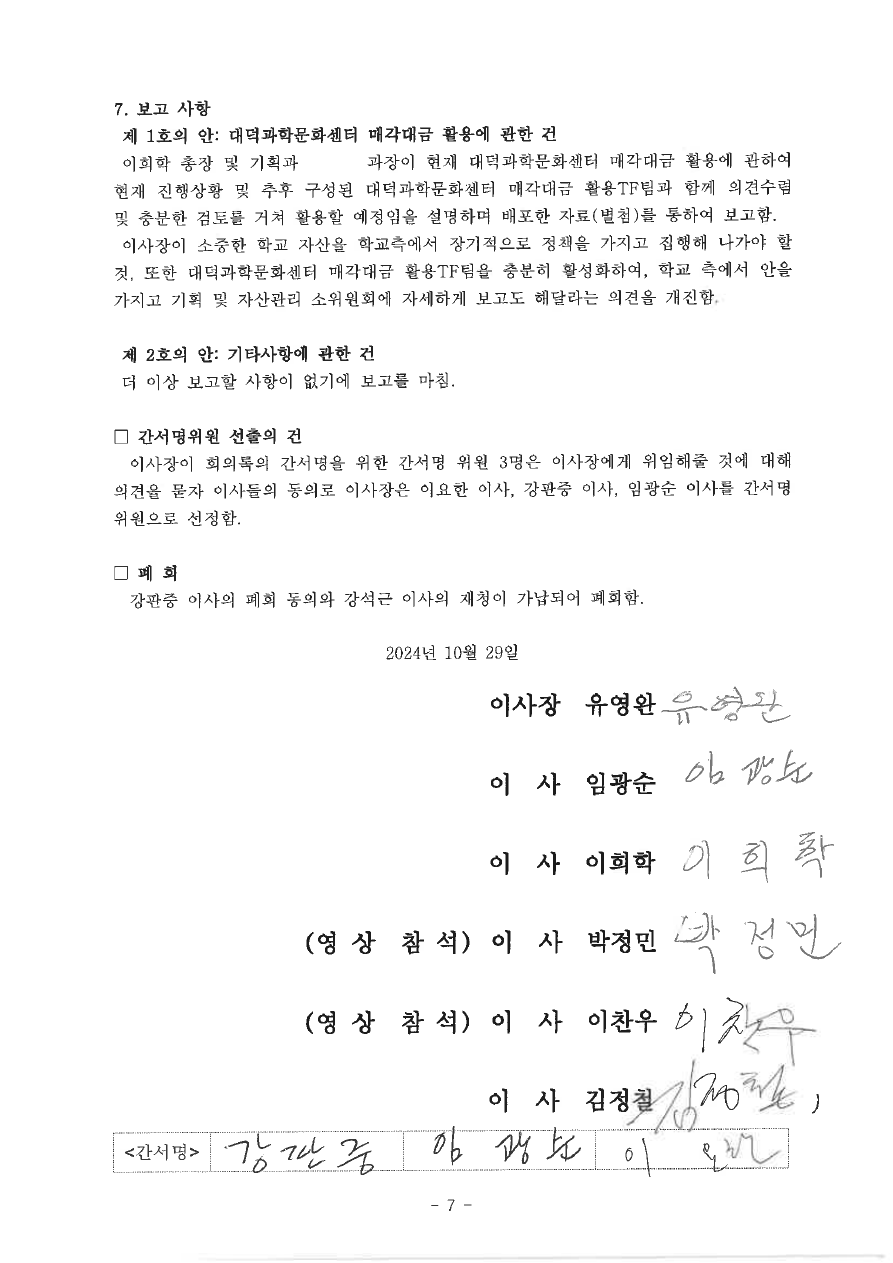 7. 보고 사항
제 1호의 안: 대덕과학문화센터 매각대금 활용에 관한 건
이희학 총장 및 기획과 과장이 현재 대덕과학문화센터 매각대금 활용에 관하여
현재 진행상황 및 추후 구성된 대덕과학문화센터 매각대금 활용TF팀과 함께 의견수렴
및 충분한 검토를 거쳐 활용할 예정임을 설명하며 배포한 자료(별첨)를 통하여 보고함.
이사장이 소중한 학교 자산을 학교측에서 장기적으로 정책을 가지고 집행해 나가야 할
것, 또한 대덕과학문화센터 매각대금 활용TF팀을 충분히 활성화하여, 학교 측에서 안을
가지고 기획 및 자산관리 소위원회에 자세하게 보고도 해달라는 의견을 개진함.
제 2호의 안: 기타사항에 관한 건
더 이상 보고할 사항이 없기에 보고를 마침.
□ 간서명위원 선출의 건
이사장이 회의록의 간서명을 위한 간서명 위원 3명은 이사장에게 위임해줄 것에 대해
의견을 묻자 이사들의 동의로 이사장은 이요한 이사, 강판중 이사, 임광순 이사를 간서명
위원으로 선정함.
□ 폐 회
강판중 이사의 폐회 동의와 강석근 이사의 재청이 가납되어 폐회함.
2024년 10월 29일
이사장 유영완 유영완
이 사 임광순 임광순
이 사 이희학 이희학
(영 상 참 석) 이 사 박정민 박정민
(영 상 참 석) 이 사 이찬우 이찬우
이 사 김정철 김정철
<간서명> 강판중 임광순 이요한
- 7 -